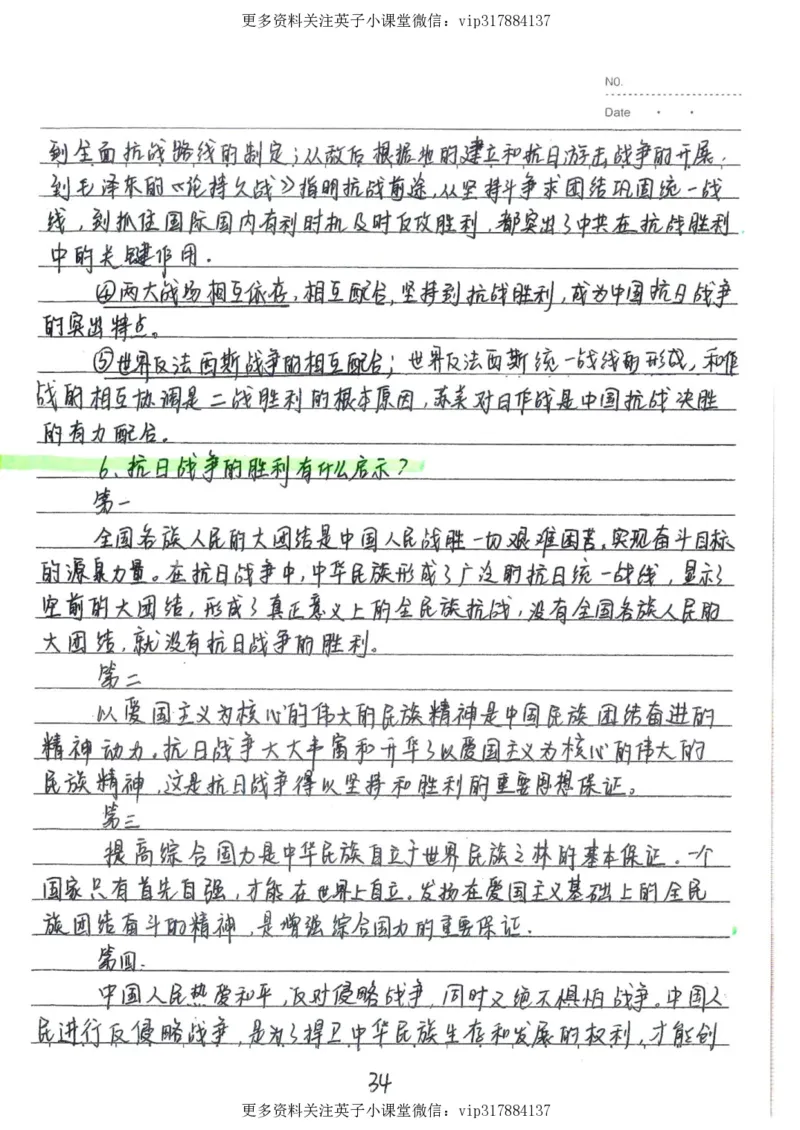 更多资料关注英子小课堂微信：vip317884137
NO.
Date
到全面抗战路线的制定；从敌后根据地的建立和抗日游击战争的开展，
到毛泽东的《论持久战》指明抗战前途，从坚持斗争求团结巩固统一战
线，到抓住国际国内有利时机及时反攻胜利，都突出了中共在抗战胜利
中的关键作用．
④两大战场相互依存，相互配合，坚持到抗战胜利，成为中国抗日战争
的突出特点。
⑤世界反法西斯战争的相互配合；世界反法西斯统一战线的形成，和作
战的相互协调是二战胜利的根本原因，苏美对日作战是中国抗战决胜
的有力配合。
6、抗日战争的胜利有什么启示？
第一
全国各族人民的大团结是中国人民战胜一切艰难困苦。实现奋斗目标
的源泉力量。在抗日战争中，中华民族形成了广泛的抗日统一战线，显示了
空前的大团结，形成了真正意义上的全民族抗战，没有全国各族人民的
大团结，就没有抗日战争的胜利。
第二
以爱国主义为核心的伟大的民族精神是中国民族团结奋进的
精神动力。抗日战争大大丰富和升华了以爱国主义为核心的伟大的
民族精神，这是抗日战争得以坚持和胜利的重要思想保证。
第三
提高综合国力是中华民族自立于世界民族之林的基本保证．一个
国家只有首先自强，才能在世界上自立。发扬在爱国主义基础上的全民
族团结奋斗的精神，是增强综合国力的重要保证．
第四．
中国人民热爱和平，反对侵略战争，同时又绝不惧怕战争。中国人
民进行反侵略战争，是为了捍卫中华民族生存和发展的权利，才能创
34
更多资料关注英子小课堂微信：vip317884137